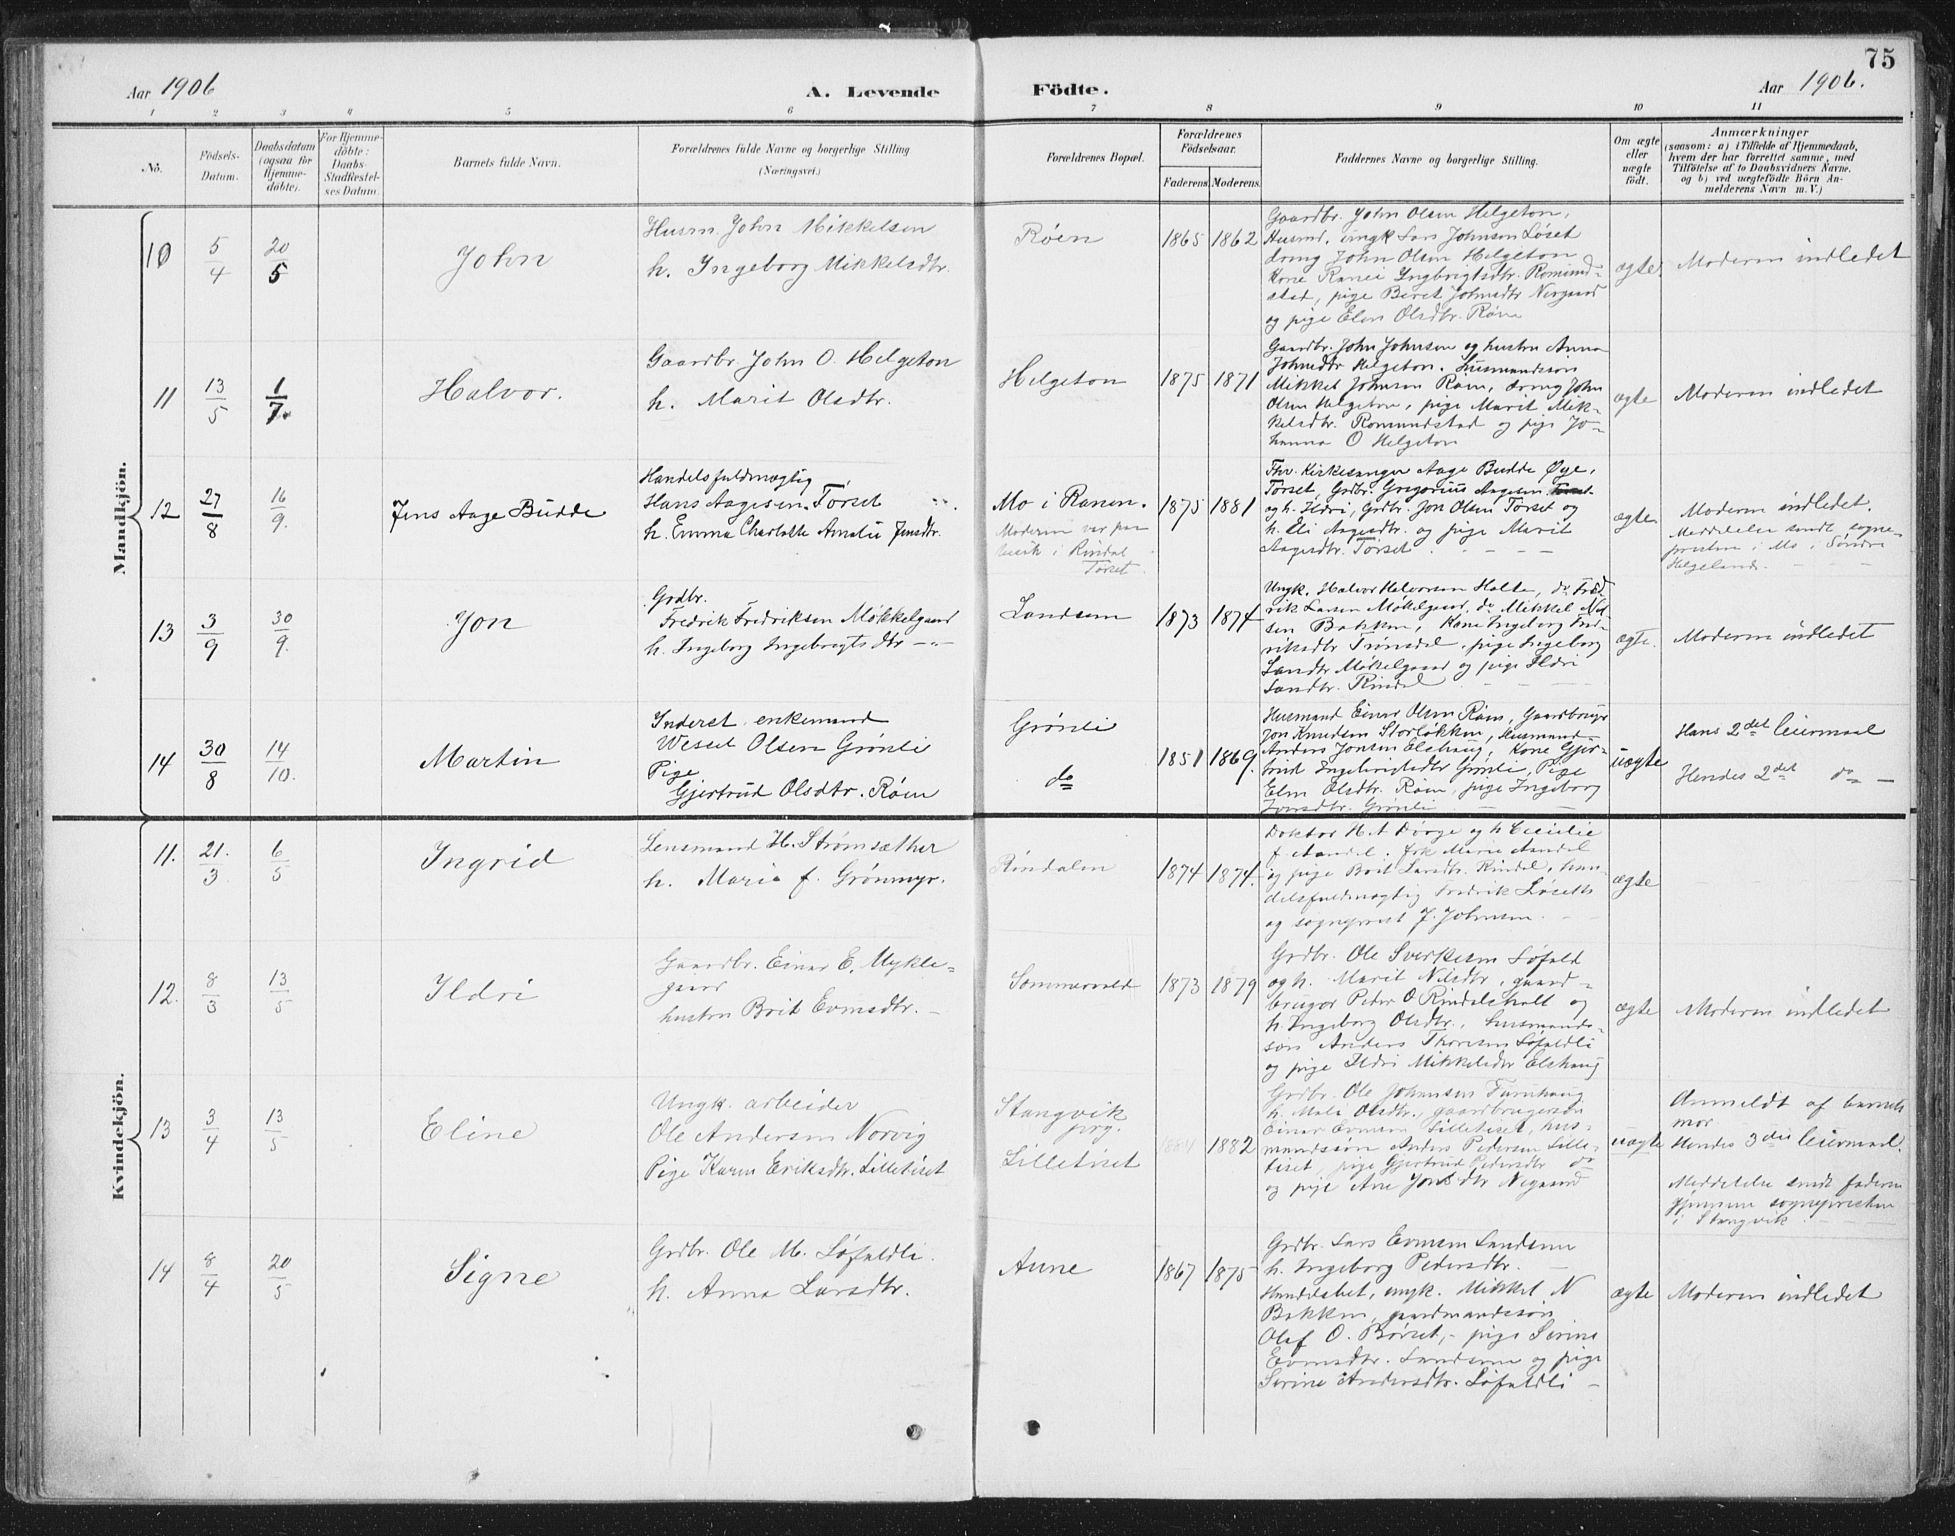 75
Aar 1906
A. Levende
Födte.
Aar 1906.
1 2 3 4 5 6 7 8 9 10 11
No.
Födsels-
Datum.
Daabsdatum
(ogsaa for
Hjemme-
döbte).
For Hjemme-
döbte:
Daabs-
Stadfæstel-
ses Datum.
Barnets fulde Navn.
Forældrenes fulde Navne og borgerlige Stilling
(Næringsvei.)
Forældrenes Bopæl.
Forældrenes
Födselsaar.
Faderens. Moderens.
Faddernes Navne og borgerlige Stilling.
Om ægte
eller
uægte
födt.
Anmærkninger
(saasom: a) i Tilfælde af Hjemmedaab,
hvem der har forrettet samme, med
Tilföielse af to Daabsvidners Navne.
og b) ved uægtefödte Börn An-
melderens Navn m. V.)
Mandkjön.
10
5/4
20/5
John
Husm. John Mikkelsen
h. Ingeborg Mikkelsdtr.
Røen
1865 1862
Gaardbr. John Olsen Helgeton,
Husmd. ungk Lars Johnsen Løset
dreng John Olsen Helgeton
Kone Ranei Yngbrigtsdtr. Romund-
stad, pige Beret Johnsdtr Nergaard
og pige Elen Olsdtr. Røen
ægte
Moderen indledet
11
13/5
1/7.
Halvor.
Gaardbr. John O. Helgeton
h. Marit Olsdtr.
Helgeton
1875 1871
Gaardbr. John Johnsen og hustru Anna
Johnsdtr Helgeton. Husmandssøn
Mikkel Johnsen Røen, dreng John
Olsen Helgeton, pige Marit Mik-
kelsdtr. Romundstad og pige Jo-
hanna O Helgeton
ægte
Moderen indledet
12
27/8
16/9.
Jens Aage Budde
Handelsfuldmægtig
Hans Aagesen Törset
h. Emma Charlotte Amalie Jensdtr.
Mo i Ranen.
Moderen var paa
besøk i Rindal
Törset.
1875 1881
Fhv. Kirkesanger Aage Budde Øye,
Törset, Grdbr. Gregorius Aagesen
og h. Ildri, Grdbr. Jon Olsen Törset og
h. Eli Aagesdtr. og pige Marit
Aagesdtr. Törset
ægte.
Moderen indledet.
Meddelelse sendt sogne-
presten i Mo i Søndre
Helgeland.
13
3/9
30/9.
Jon
Grdbr.
Fredrik Fredriksen Møkkelgaard
h. Ingeborg Ingebrigtsdtr -"-
Landsem
1873 1874
Ungk. Halvor Halvorsen Halte, do Fred-
rik Larsen Møkelgaard, do Mikkel Nil-
sen Bakken, Kone Ingeborg Ind-
riksdtr Trönsdal, pige Ingeborg
Larsdtr Møkelgaard og pige Ildri
Larsdtr. Rindal
ægte.
Moderen indledet
14
30/8
14/10.
Martin
Inderst, enkemand
Wessel Olsen Grönli
Pige
Gjertrud Olsdtr. Røen
Grönli
do
1851 1869.
Husmand Einar Olsen Røen, Gaardbruger
Jon Knudsen Storløkken, Husmand
Anders Jonsen Elshaug, Kone Gjer-
trud Ingebrigtsdtr Grönli, Pige
Elen Olsdtr. Røen, pige Ingeborg
Jonsdtr. Grönli
uægte
Hans 2det leiermaal
Hendes 2det do —
Kvindekjön.
11.
21./3.
6/5
Ingrid
Lensmand H. Strømsæther
h. Marie f. Grönmyr.
Rindalen
1874 1874.
Doktor H A Dörge og h Cecilie
f. Aandal. frk Marie Aandal
og pige Brit Larsdtr. Rindal, han-
delsfuldmægtig Fredrik Løseth
og sogneprest J. Johnsen.
ægte
12.
8/3
13/5
Ildri
Gaardbr. Einar E. Mykle-
gaard
hustru Brit Evensdtr. —
Sommervold
1873 1879
Grdbr. Ole Sverkesen Løfald
og h. Marit Nilsdtr, gaard-
bruger Peder O Rindalsholt og
h. Ingeborg Olsdtr., husmands-
søn Anders Thoresen Løfaldli
og pige Ildri Mikkelsdtr Elshaug
ægte
Moderen indledet
13
3/4
13/5
Eline
Ungk. arbeider
Ole Andersen Norvig
Pige Karen Eriksdtr. Lilletiset
Stangvik
prg.
Lilletiset
1884 1882
Grdbr. Ole Johansen Furuhaug
h. Mali Olsdtr., gaardbrugersøn
Einar Evensen Lilletiset, hus-
mandssøn Anders Pedersen Lille-
tiset, pige Gjertrud Pedersdtr do
og pige Ane Jonsdtr Negaard
uægte
Anmeldt af barnets
mor
Hendes 3die leiermaal.
Meddelelse sendt faderen
gjennem sognepresten
i Stangvik.
14
8/4
20/5
Signe
Grdbr. Ole M. Løfaldli.
h. Anna Larsdtr.
Aune
1867 1875
Grdbr. Lars Evensen Landsem
h. Ingeborg Pedersdtr.
Hunddalset, ungk. Mikkel N
Bakken, gaardmandssøn
Olaf O. Børset, pige Serine
Evensdtr. Landsem og pige
Serine Andersdtr. Løfaldli —
ægte
Moderen indledet